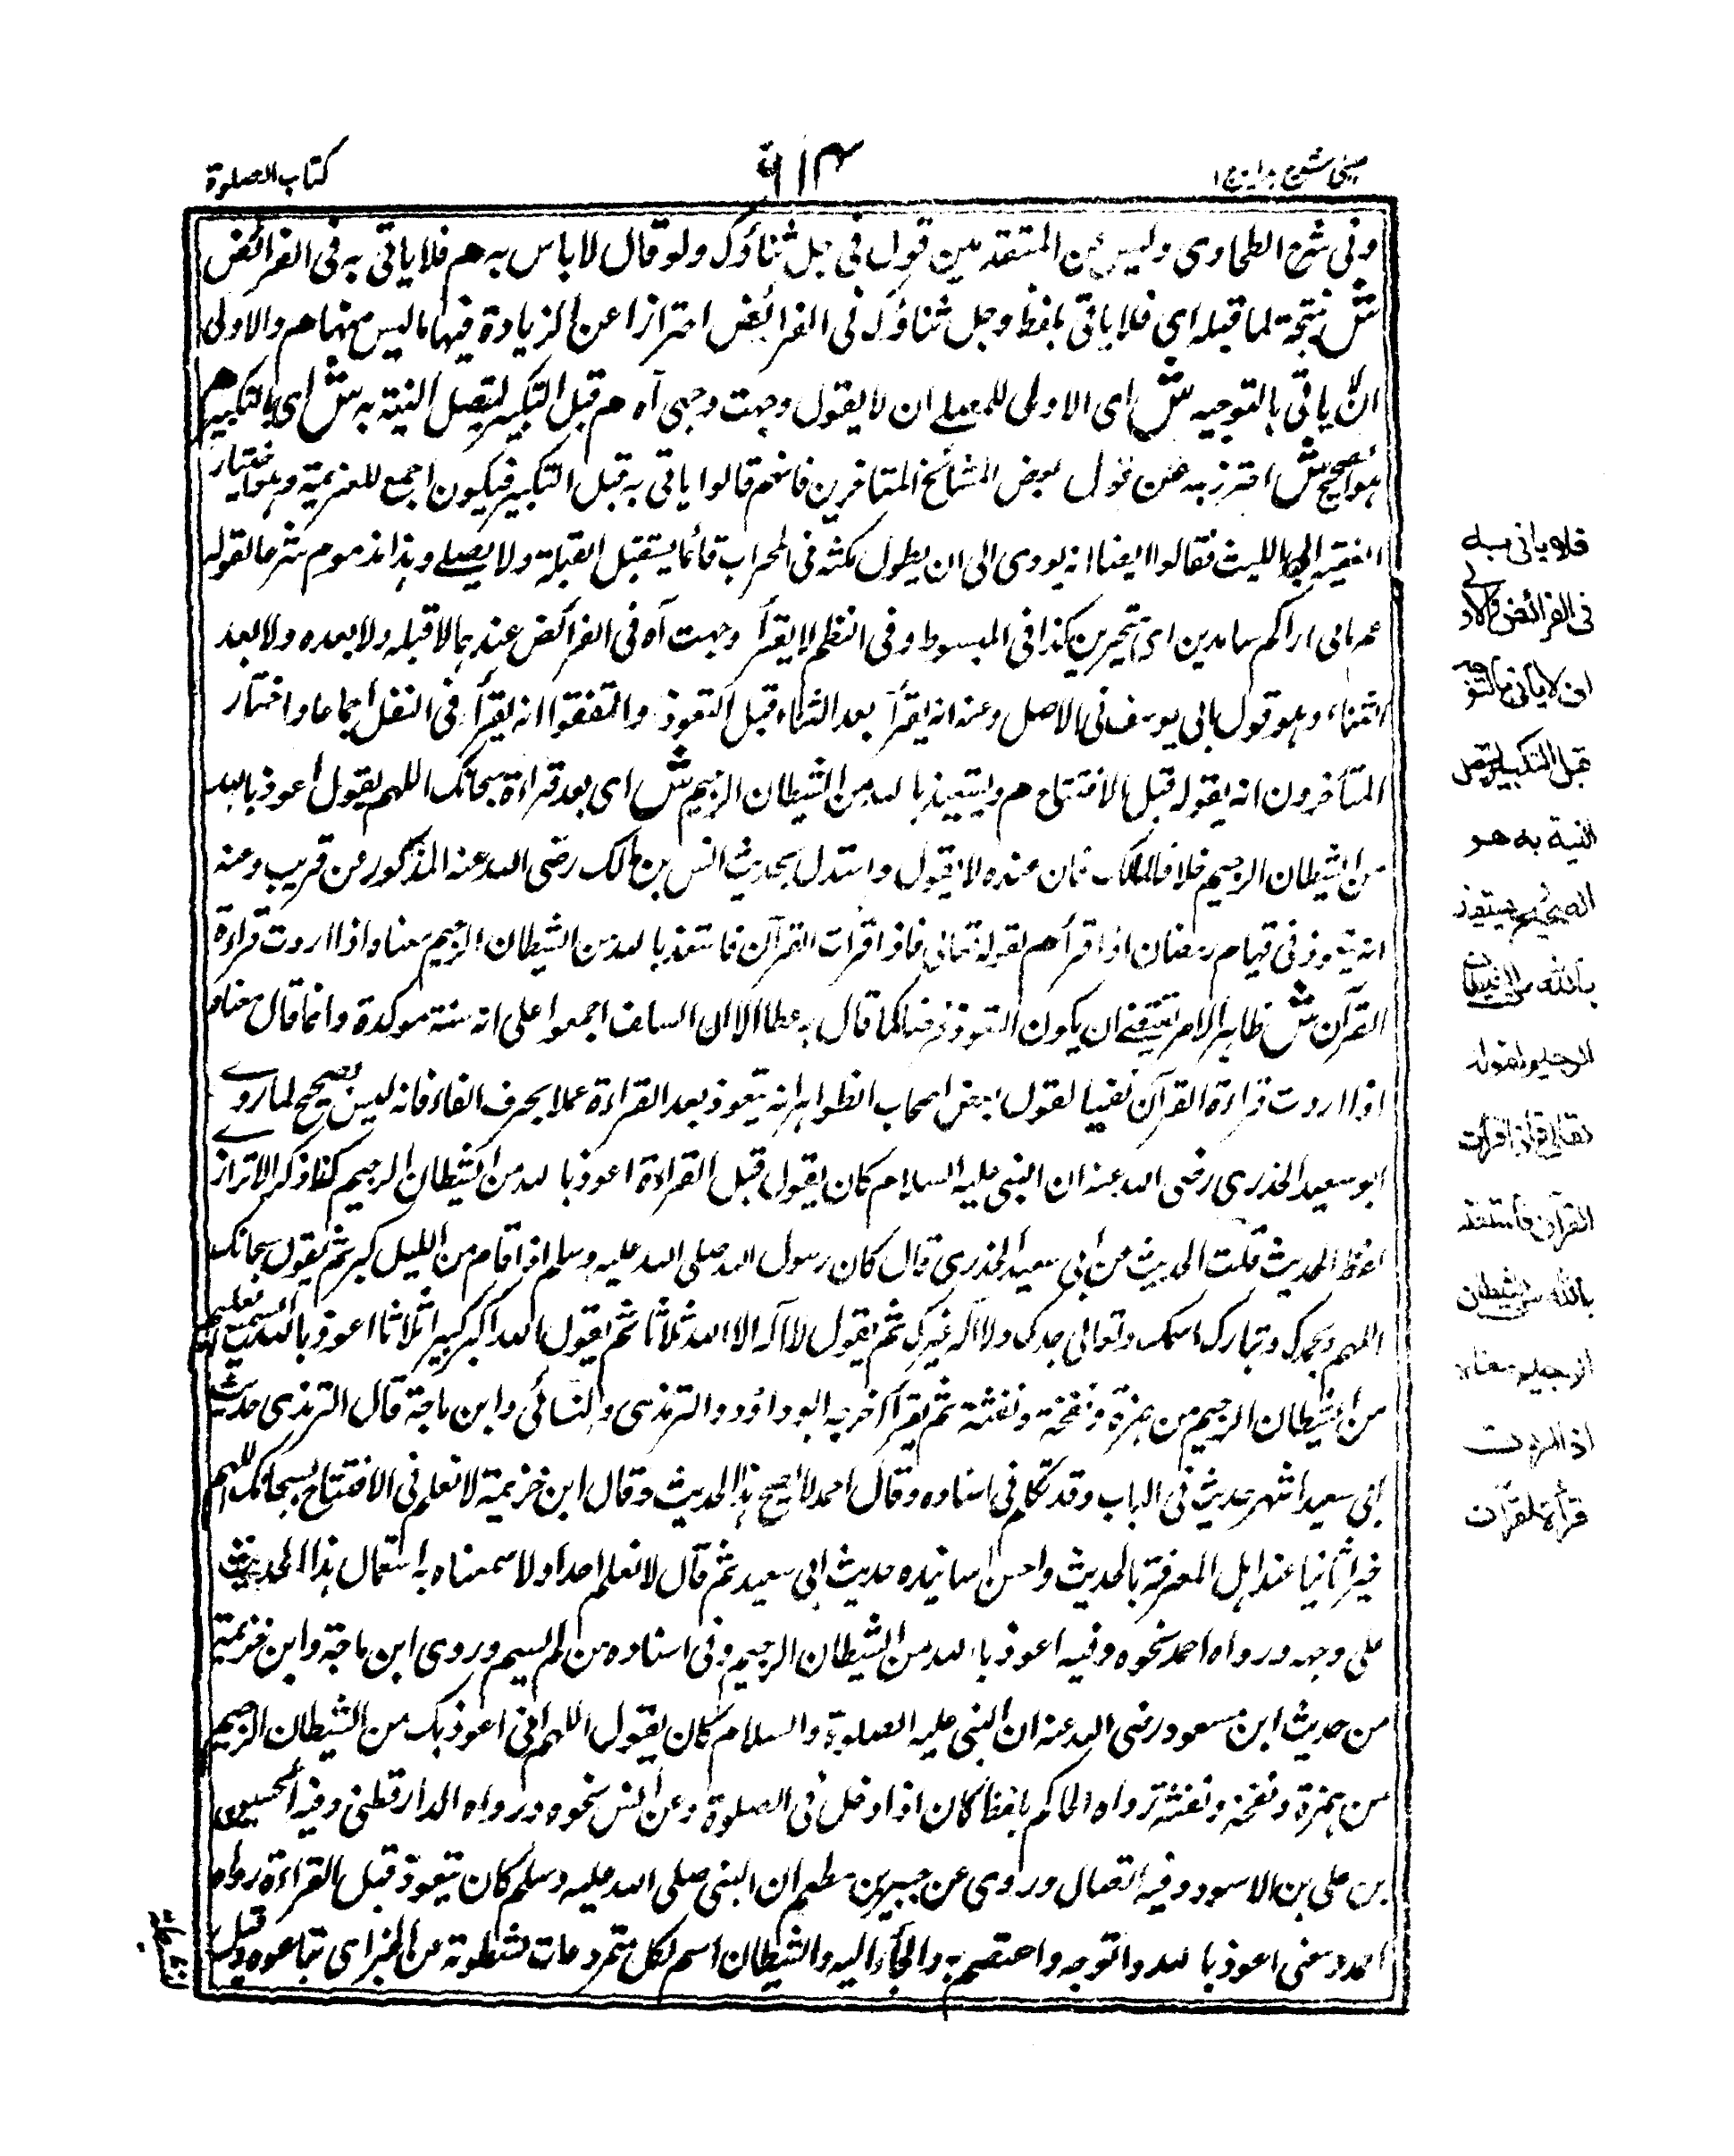 عینی شرح ہدایہ ج ۱
۶۱۴
کتاب الصلوة
وفی شرح الطحاوی ولیس عن المتقدمین قول فی جل ثناؤک ولو قال لا باس به هم فلا یاتی به فی الفرائض
ش نتیجة لما قبله ای فلا یاتی بلفظ وجل ثناؤک فی الفرائض احترازا عن الزیادة فیها ما لیس منها هم والاولی
ان لا یاتی بالتوجیه ش ای الاولی للمصلے ان لا یقول وجهت وجهی آه هم قبل التکبیر لیتصل النیة به ش ای بالتکبیر هم
هو الصحیح ش احترز به عن قول بعض المشائخ المتاخرین فانهم قالوا یاتی به قبل التکبیر فیکون اجمع للعزیمة وهو اختیار
الفقیه ابی اللیث فقالوا ایضا انه یودی الی ان یطول مکثه فی المحراب قائما یستقبل القبلة ولا یصلے وهذا مذموم شرعا لقوله
عم مالی اراکم سامدین ای متحیرین کذا فی المبسوط وفی النظم لا یقرأ وجهت آه فی الفرائض عندهما لا قبله ولا بعده ولا بعد
الثناء وهو قول ابی یوسف فی الاصل وعنه انه یقرأ بعد الثناء قبل التعوذ واتفقوا انه یقرأ فی النفل اجماعا واختار
المتأخرون انه یقوله قبل الافتتاح هم ویستعیذ بالله من الشیطان الرجیم ش ای بعد قراءة سبحانک اللهم یقول اعوذ بالله
من الشیطان الرجیم خلافا لمالک فان عنده لا یقول واستدل بحدیث انس بن مالک رضی الله عنه المذکور من قریب وعنه
انه یتعوذ فی قیام رمضان اذا قرأ هم لقوله تعالی فاذا قرأت القرآن فاستعذ بالله من الشیطان الرجیم معناه اذا اردت قراءة
القرآن ش ظاهر الامر یقتضے ان یکون التعوذ فرضا کما قال به عطا الا ان السلف اجمعوا علی انه سنة موکدة وانما قال معناه
اذا اردت قراءة القرآن نفیا لقول بعض اصحاب الظواهر انه یتعوذ بعد القراءة عملا بحرف الفاء فانه لیس بصحیح لما روے
ابو سعید الخدری رضی الله عنه ان النبی علیه السلام کان یقول قبل القراءة اعوذ بالله من الشیطان الرجیم کذا ذکر الاترازے
لفظ الحدیث قلت الحدیث من ابی سعید الخدری قال کان رسول الله صلی الله علیه وسلم اذا قام من اللیل کبر ثم یقول سبحانک
اللهم وبحمدک وتبارک اسمک وتعالی جدک ولا اله غیرک ثم یقول لا اله الا الله ثلاثا ثم یقول الله اکبر کبیرا ثلاثا اعوذ بالله السمیع العلیم
من الشیطان الرجیم من همزة ونفخة ونفثة ثم یقرأ اخرجه ابو داؤد والترمذی والنسائی وابن ماجة قال الترمذی حدیث
ابی سعید اشهر حدیث فی الباب وقد تکلم فی اسناده وقال احمد لا یصح هذا الحدیث وقال ابن خزیمة لا نعلم فی الافتتاح بسبحانک اللهم
خبرا ثابتا عند اهل المعرفة بالحدیث واحسن اسانیده حدیث ابی سعید ثم قال لا نعلم احدا ولا سمعناه به استعمال هذا الحدیث
علی وجهه ورواه احمد نحوه وفیه اعوذ بالله من الشیطان الرجیم وفی اسناده من لم یسم وروی ابن ماجة وابن خزیمة
من حدیث ابن مسعود رضی الله عنه ان النبی علیه الصلوة والسلام کان یقول اللهم انی اعوذ بک من الشیطان الرجیم
من همزة ونفخة ونفثة ورواه الحاکم بلفظ کان اذا دخل فی الصلوة وعن انس نحوه ورواه الدارقطنی وفیه الحسین
بن علی بن الاسود وفیه اتصال وروی عن جبیر بن مطعم ان النبی صلی الله علیه وسلم کان یتعوذ قبل القراءة رواه
احمد ومعنی اعوذ بالله والتوجه واعتصم به والجأ الیه والشیطان اسم لکل متمرد عات لشطونه عن الخیر ای تباعده وقیل
فلا یاتی به
فی الفرائض والاولے
ان لا یاتی بالتوجه
قبل التکبیر لیتصل
النیة به هو
الصحیح ویستعیذ
بالله من الشیطان
الرجیم لقوله
تعالی فاذا قرأت
القرآن فاستعذ
بالله من الشیطان
الرجیم معناه
اذا اردت
قرأة القرآن